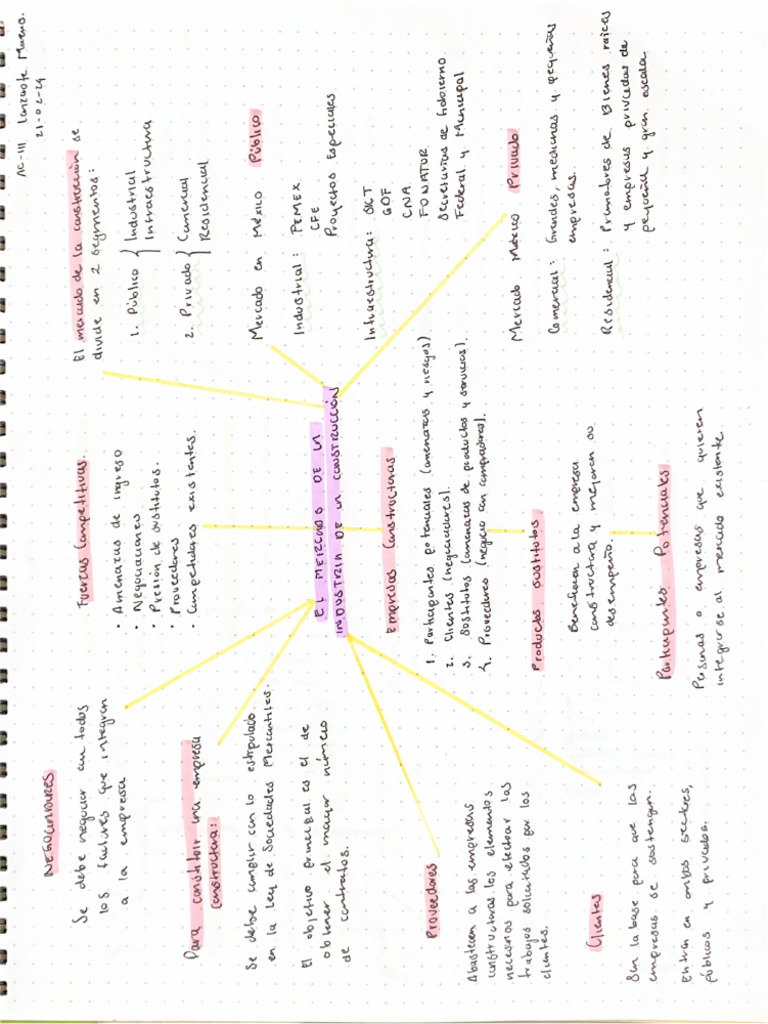 AC-III Lanzarote Moreno.
21-02-24
NEGOCIADORES
Se debe negociar con todos
los factores que integran
a la empresa
Fuerzas Competitivas.
• Amenazas de ingreso
• Negociaciones
• Presión de sustitutos.
• Proveedores
• Competidores existentes.
El mercado de la construcción se
divide en 2 segmentos:
1. Público { Industrial
Infraestructura
2. Privado { Comercial
Residencial
Para constituir una empresa
constructora:
Se debe cumplir con lo estipulado
en la Ley de Sociedades Mercantiles.
El objetivo principal es el de
obtener el mayor número
de contratos.
EL MERCADO DE LA
INDUSTRIA DE LA CONSTRUCCIÓN
Mercado en México Público
Industrial: PEMEX
CFE
Proyectos Especiales
Infraestructura: SCT
GDF
CNA
FONATUR
Secretarías de Gobierno
Federal y Municipal
Empresas Constructoras
1. Participantes potenciales (amenazas y riesgos)
2. Clientes (negociadores).
3. Sustitutos (amenazas de productos y servicios).
4. Proveedores (negocio con compradores).
Mercado México Privado
Comercial: Grandes, medianas y pequeñas
empresas.
Residencial: Promotores de Bienes raíces
y empresas privadas de
pequeña y gran escala.
Proveedores
Abastecen a las empresas
constructoras los elementos
necesarios para efectuar los
trabajos solicitados por los
clientes.
Productos sustitutos.
Benefician a la empresa
constructora y mejoran su
desempeño.
Clientes
Son la base para que las
empresas se sostengan.
Entran en ambos sectores,
públicos y privados.
Participantes Potenciales.
Personas o empresas que quieren
integrarse al mercado existente.